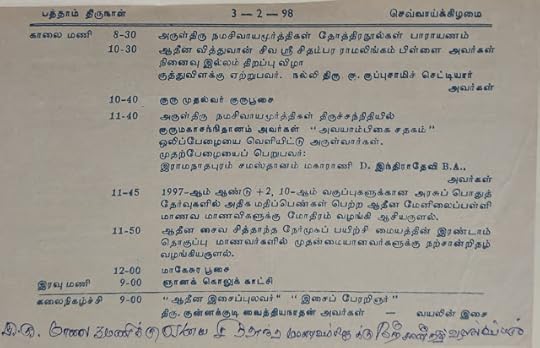 பத்தாம் திருநாள் 3-2-98 செவ்வாய்க்கிழமை
காலை மணி 8-30 அருள்திரு நமசிவாயமூர்த்திகள் தோத்திரநூல்கள் பாராயணம்
10-30 ஆதீன வித்துவான் சிவ ஸ்ரீ சிதம்பர ராமலிங்கம் பிள்ளை அவர்கள்
நினைவு இல்லம் திறப்பு விழா
குத்துவிளக்கு ஏற்றுபவர். நல்லி திரு கு. குப்புசாமிச் செட்டியார்
அவர்கள்
10-40 குரு முதல்வர் குருபூசை
11-40 அருள்திரு நமசிவாயமூர்த்திகள் திருச்சந்நிதியில்
குருமகாசந்நிதானம் அவர்கள் "அவயாம்பிகை சதகம்"
ஒலிப்பேழையை வெளியிட்டு அருள்வார்கள்.
முதற்பேழையைப் பெறுபவர்:
இராமநாதபுரம் சமஸ்தானம் மகாராணி D. இந்திராதேவி B.A.,
அவர்கள்
11-45 1997-ஆம் ஆண்டு +2, 10-ஆம் வகுப்புகளுக்கான அரசுப் பொதுத்
தேர்வுகளில் அதிக மதிப்பெண்கள் பெற்ற ஆதீன மேனிலைப்பள்ளி
மாணவ மாணவிகளுக்கு மோதிரம் வழங்கி ஆசியருளல்.
11-50 ஆதீன சைவ சித்தாந்த நேர்முகப் பயிற்சி மையத்தின் இரண்டாம்
தொகுப்பு மாணவர்களில் முதன்மையானவர்களுக்கு நற்சான்றிதழ்
வழங்கியருளல்.
12-00 மாகேசுர பூசை
இரவு மணி 9-00 ஞானக் கொலுக் காட்சி
கலைநிகழ்ச்சி 9-00 "ஆதீன இசைப்புலவர்" "இசைப் பேரறிஞர்"
திரு. குன்னக்குடி வைத்தியநாதன் அவர்கள் — வயலின் இசை